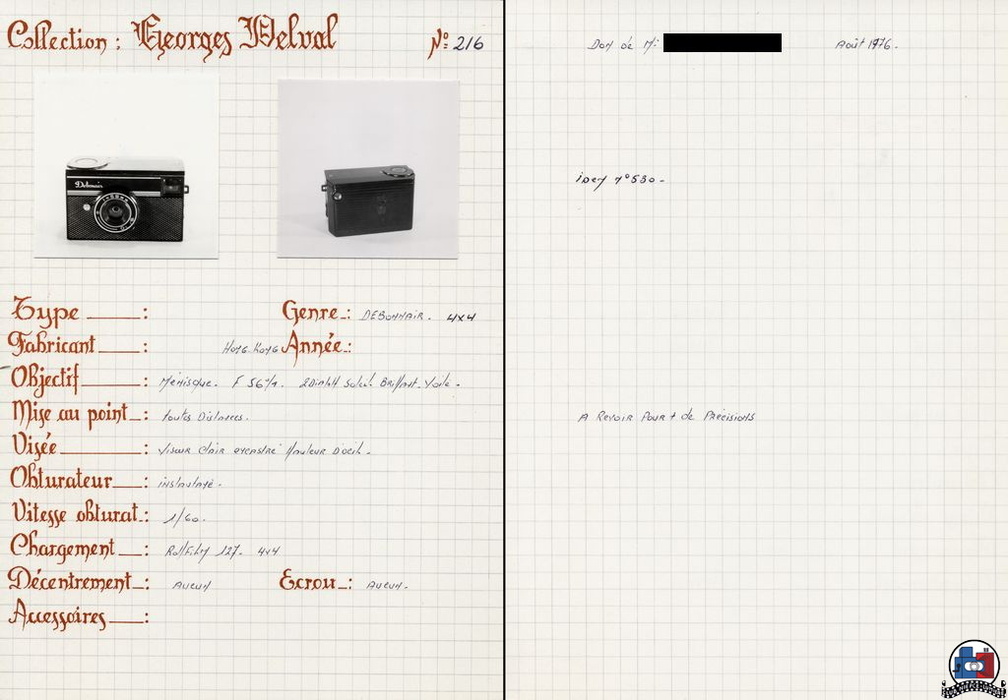 Collection : Georges Delval Nº 216
Debonair
Type : Genre : DEBONNAIR. 4x4
Fabricant : HONG. KONG Année :
Objectif : Ménisque. F 56 m/m. Soleil Brillant. Voilé.
Mise au point : toutes Distances.
Visée : Viseur Clair excentré Hauteur D'oeil.
Obturateur : instantané.
Vitesse obturat : 1/60.
Chargement : RollFilm 127. 4x4
Décentrement : Aucun Ecrou : Aucun.
Accessoires :
Don de Mr Août 1976.
idem n°530-
A Revoir Pour + de Précisions